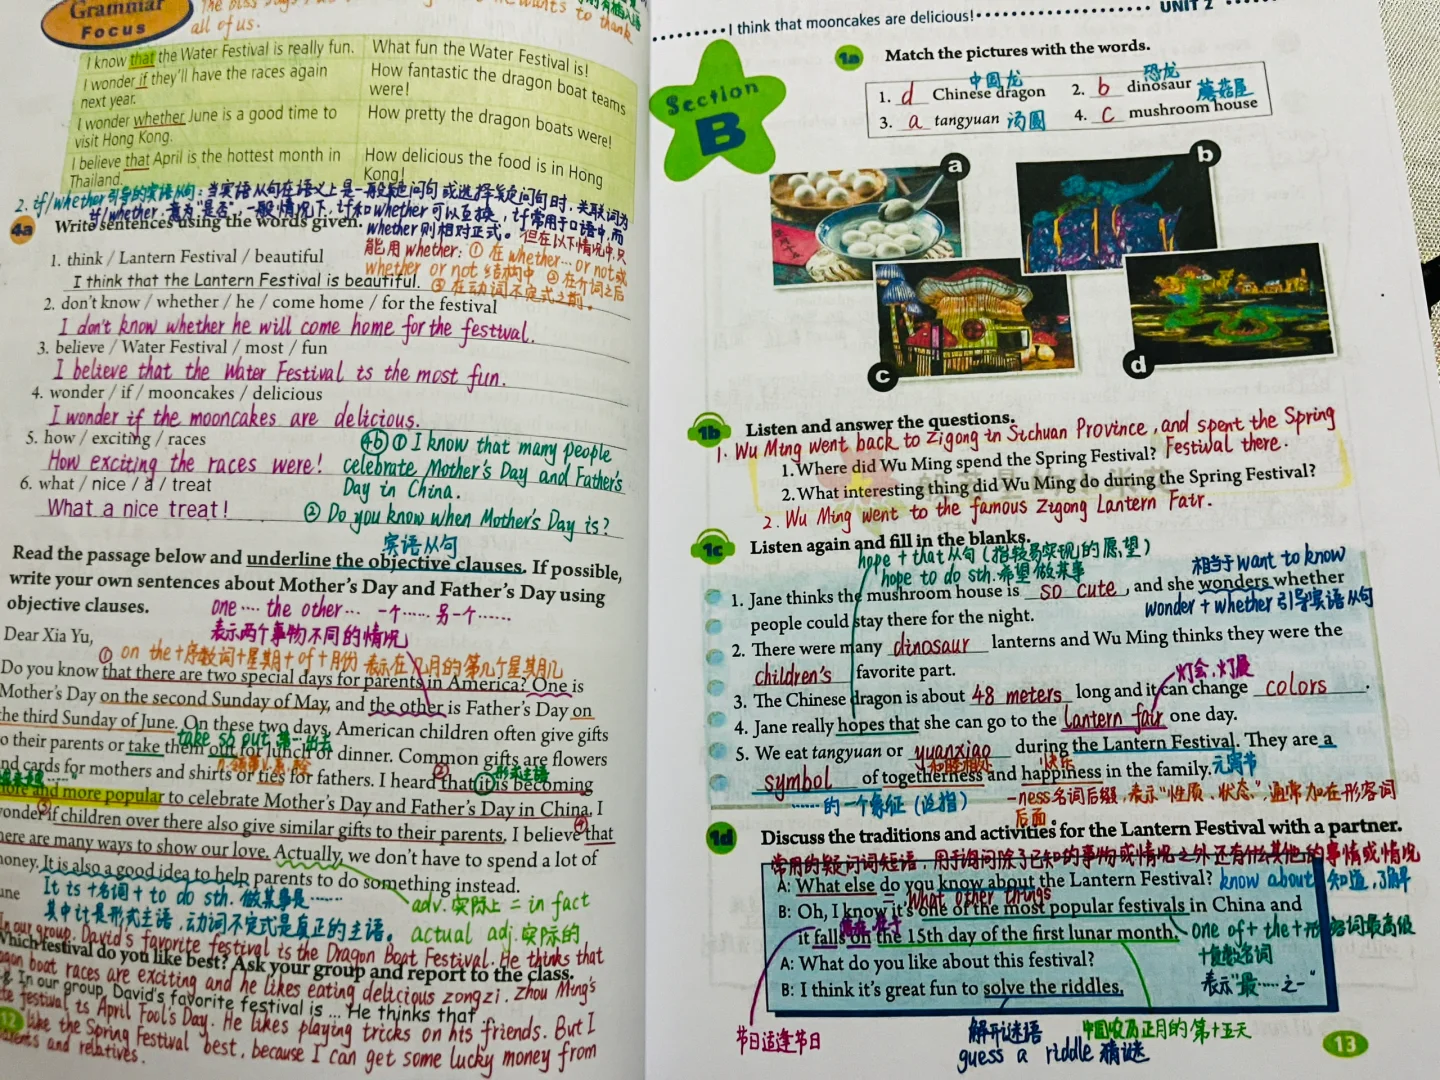 Grammar
Focus
all of us.
to thank
I know that the Water Festival is really fun.
What fun the Water Festival is!
I wonder if they'll have the races again
next year.
How fantastic the dragon boat teams
were!
I wonder whether June is a good time to
visit Hong Kong.
How pretty the dragon boats were!
I believe that April is the hottest month in
Thailand.
How delicious the food is in Hong
Kong!
2. if/whether引导的宾语从句：当宾语从句在语义上是一般疑问句或选择疑问句时，关联词为
if/whether，意为“是否”，一般情况下，if和whether可以互换，if常用于口语中，而
whether则相对正式。但在以下情况中，只
能用whether：① 在whether...or not或
whether or not 结构中 ② 在介词之后
③ 在动词不定式之前。
4a Write sentences using the words given.
1. think / Lantern Festival / beautiful
I think that the Lantern Festival is beautiful.
2. don't know / whether / he / come home / for the festival
I don't know whether he will come home for the festival.
3. believe / Water Festival / most / fun
I believe that the Water Festival is the most fun.
4. wonder / if / mooncakes / delicious
I wonder if the mooncakes are delicious.
5. how / exciting / races
How exciting the races were!
6. what / nice / a / treat
What a nice treat!
4b ① I know that many people
celebrate Mother's Day and Father's
Day in China.
② Do you know when Mother's Day is?
宾语从句
Read the passage below and underline the objective clauses. If possible,
write your own sentences about Mother's Day and Father's Day using
objective clauses.
one .... the other ... 一个...... 另一个......
表示两个事物不同的情况
Dear Xia Yu,
① on the+序数词+星期+of+月份 表示在几月的第几个星期几
Do you know that there are two special days for parents in America? One is
Mother's Day on the second Sunday of May, and the other is Father's Day on
the third Sunday of June. On these two days, American children often give gifts
take sb out
to their parents or take them out for lunch or dinner. Common gifts are flowers
and cards for mothers and shirts or ties for fathers. I heard that it is becoming
② ① 形式主语
more and more popular to celebrate Mother's Day and Father's Day in China. I
③ ④
wonder if children over there also give similar gifts to their parents. I believe that
there are many ways to show our love. Actually, we don't have to spend a lot of
money. It is also a good idea to help parents to do something instead.
June
It is +名词+ to do sth. 做某事是......
其中it是形式主语，动词不定式是真正的主语。
adv. 实际上 = in fact
actual adj. 实际的
In our group, David's favorite festival is the Dragon Boat Festival. He thinks that
Which festival do you like best? Ask your group and report to the class.
dragon boat races are exciting and he likes eating delicious zongzi. Zhou Ming's
In our group, David's favorite festival is ... He thinks that
festival is April Fool's Day. He likes playing tricks on his friends. But I
like the Spring Festival best, because I can get some lucky money from
parents and relatives.
12
I think that mooncakes are delicious!
UNIT 2
Section
B
1a Match the pictures with the words.
中国龙
恐龙
1. d Chinese dragon
2. b dinosaur
蘑菇屋
3. a tangyuan 汤圆
4. c mushroom house
a
b
c
d
1b Listen and answer the questions.
1. Wu Ming went back to Zigong in Sichuan Province, and spent the Spring
Festival there.
1. Where did Wu Ming spend the Spring Festival?
2. What interesting thing did Wu Ming do during the Spring Festival?
2. Wu Ming went to the famous Zigong Lantern Fair.
1c Listen again and fill in the blanks.
hope + that从句（指较易实现的愿望）
hope to do sth. 希望做某事
相当于want to know
1. Jane thinks the mushroom house is so cute, and she wonders whether
people could stay there for the night.
wonder + whether引导宾语从句
2. There were many dinosaur lanterns and Wu Ming thinks they were the
children's favorite part.
灯会，灯展
3. The Chinese dragon is about 48 meters long and it can change colors.
4. Jane really hopes that she can go to the Lantern fair one day.
5. We eat tangyuan or yuanxiao during the Lantern Festival. They are a
和睦相处
快乐
元宵节
symbol of togetherness and happiness in the family.
......的一个象征（泛指）
-ness名词后缀，表示“性质、状态”，通常加在形容词
后面。
1d Discuss the traditions and activities for the Lantern Festival with a partner.
常用的疑问词短语，用于询问除了已知的事物或情况之外还有什么其他的事情或情况
A: What else do you know about the Lantern Festival?
know about 知道，了解
= What other things
B: Oh, I know it's one of the most popular festivals in China and
it falls on the 15th day of the first lunar month.
one of + the + 形容词最高级
+复数名词
表示“最......之一”
A: What do you like about this festival?
B: I think it's great fun to solve the riddles.
节日适逢节日
解开谜语
guess a riddle 猜谜
中国农历正月的第十五天
13